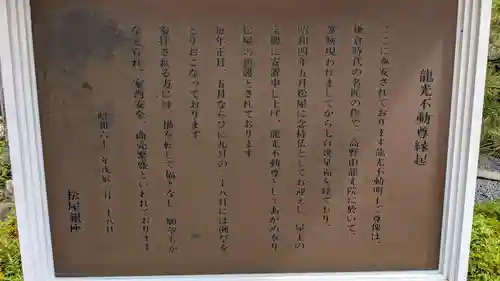 龍光不動尊縁起
ここに奉安されております龍光不動明王尊像は、
鎌倉時代の名匠の作で、高野山龍光院に於いて、
尊厳現われましてから七百幾星霜を経ており、
昭和四年五月松屋に念持仏としてお迎えし、屋上の
宝殿に安置申し上げ、龍光不動尊としてあがめ奉り
松屋の守護とされております
毎年正月、五月ならびに九月の二十八日には例祭を
とりおこなっております
参拝される方には、禍を転じて福となし、願いごとが
かなえられ、家内安全、商売繁盛といわれております
昭和六十三年戊辰 月二十八日
松屋銀座